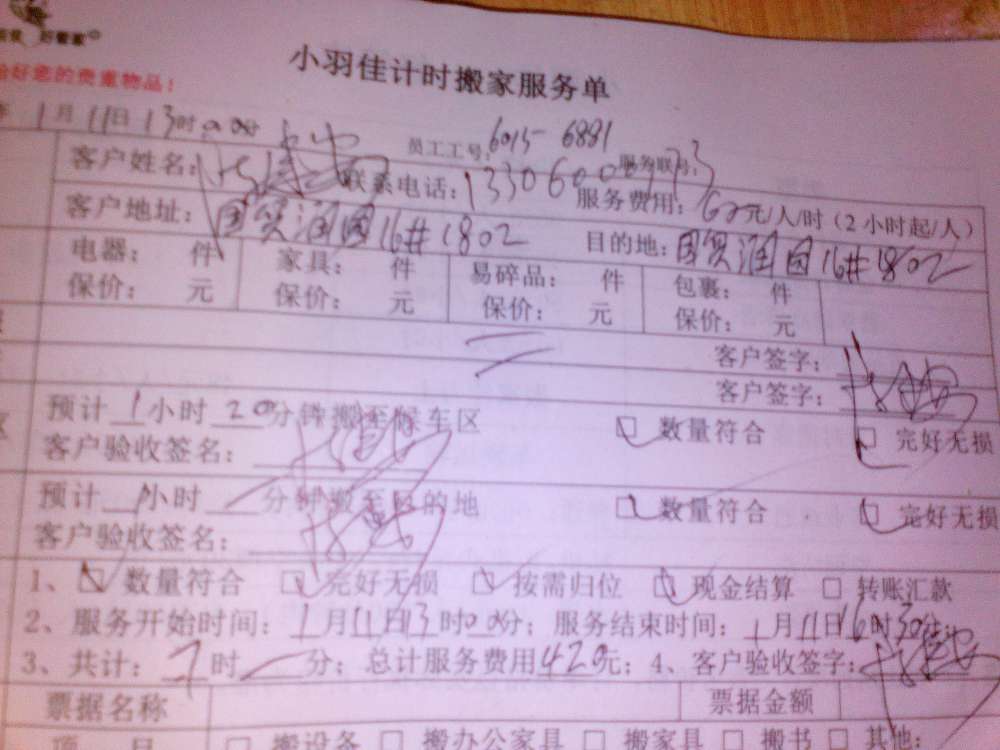 好管家
给好您的贵重物品！
小羽佳计时搬家服务单
1月11日13时00分 员工工号：6015 6881
客户姓名： 联系电话： 服务费用：60元/人/时（2小时起/人）
客户地址：国贸润园16#1802 目的地：国贸润园16#1802
电器： 件 家具： 件 易碎品： 件 包裹： 件
保价： 元 保价： 元 保价： 元 保价： 元
客户签字：
客户签字：
预计1小时20分钟搬至候车区 数量符合 完好无损
客户验收签名：
预计 小时 分钟搬至目的地 数量符合 完好无损
客户验收签名：
1、 数量符合 完好无损 按需归位 现金结算 转账汇款
2、服务开始时间：1月11日13时00分；服务结束时间：1月11日16时30分；
3、共计：7时 分；总计服务费用420元；4、客户验收签字：
票据名称 票据金额
项 目 搬设备 搬办公家具 搬家具 搬书 其他：